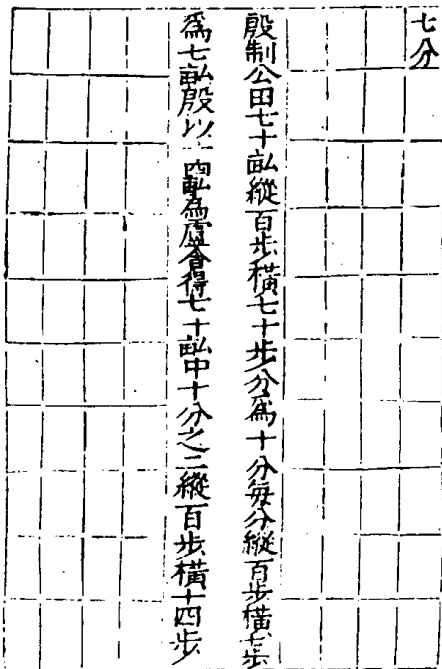 七分
殷制公田七十畝縱百步橫七十步分為十分每分縱百步橫七步
為七畝殷以十四畝為廬舍得七十畝中十分之二縱百步橫十四步